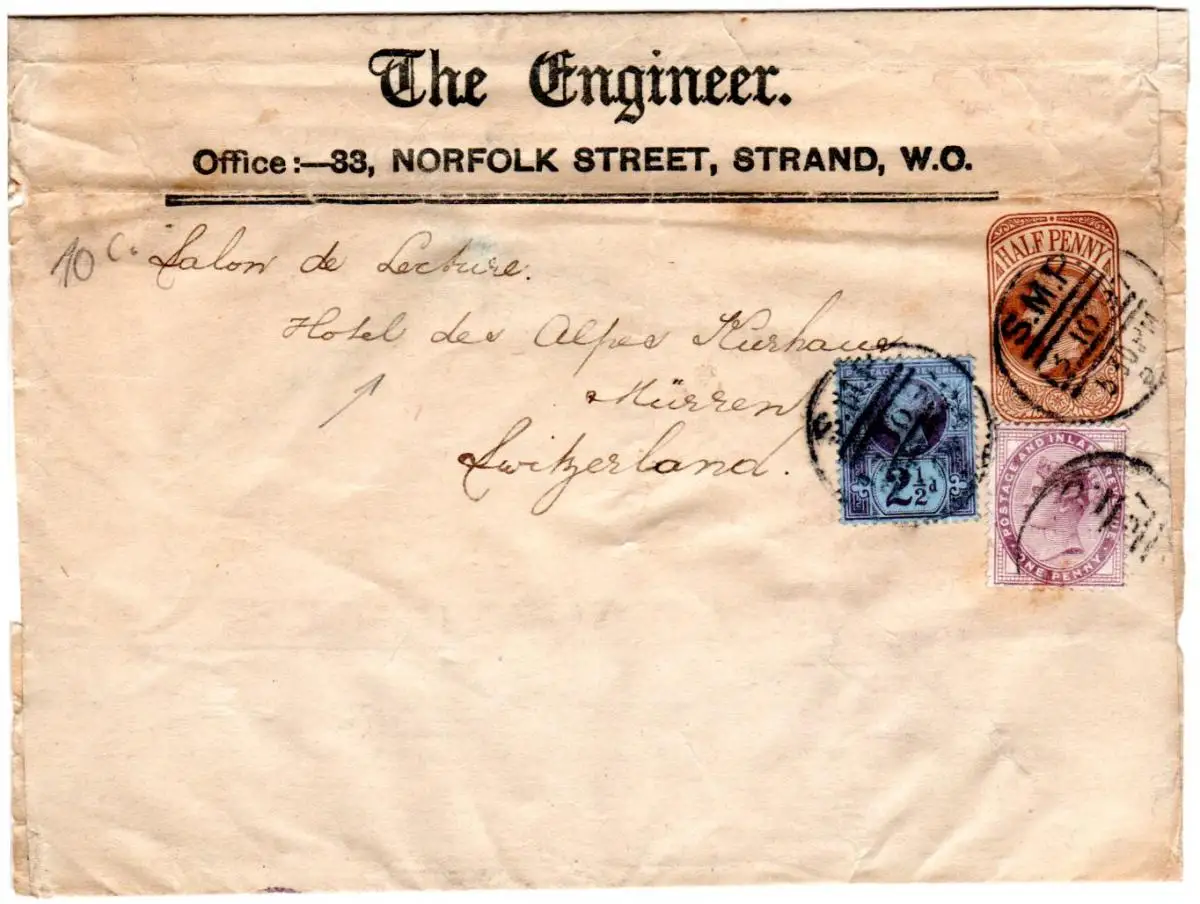 The Engineer.
Office:—33, NORFOLK STREET, STRAND, W.C.
10 c.
Salon de Lecture.
Hotel des Alpes Kurhaus
Mürren
Switzerland.
HALF PENNY
S.M.P.
10
5 30 PM
POSTAGE REVENUE
2½d
POSTAGE AND INLAND REVENUE
ONE PENNY